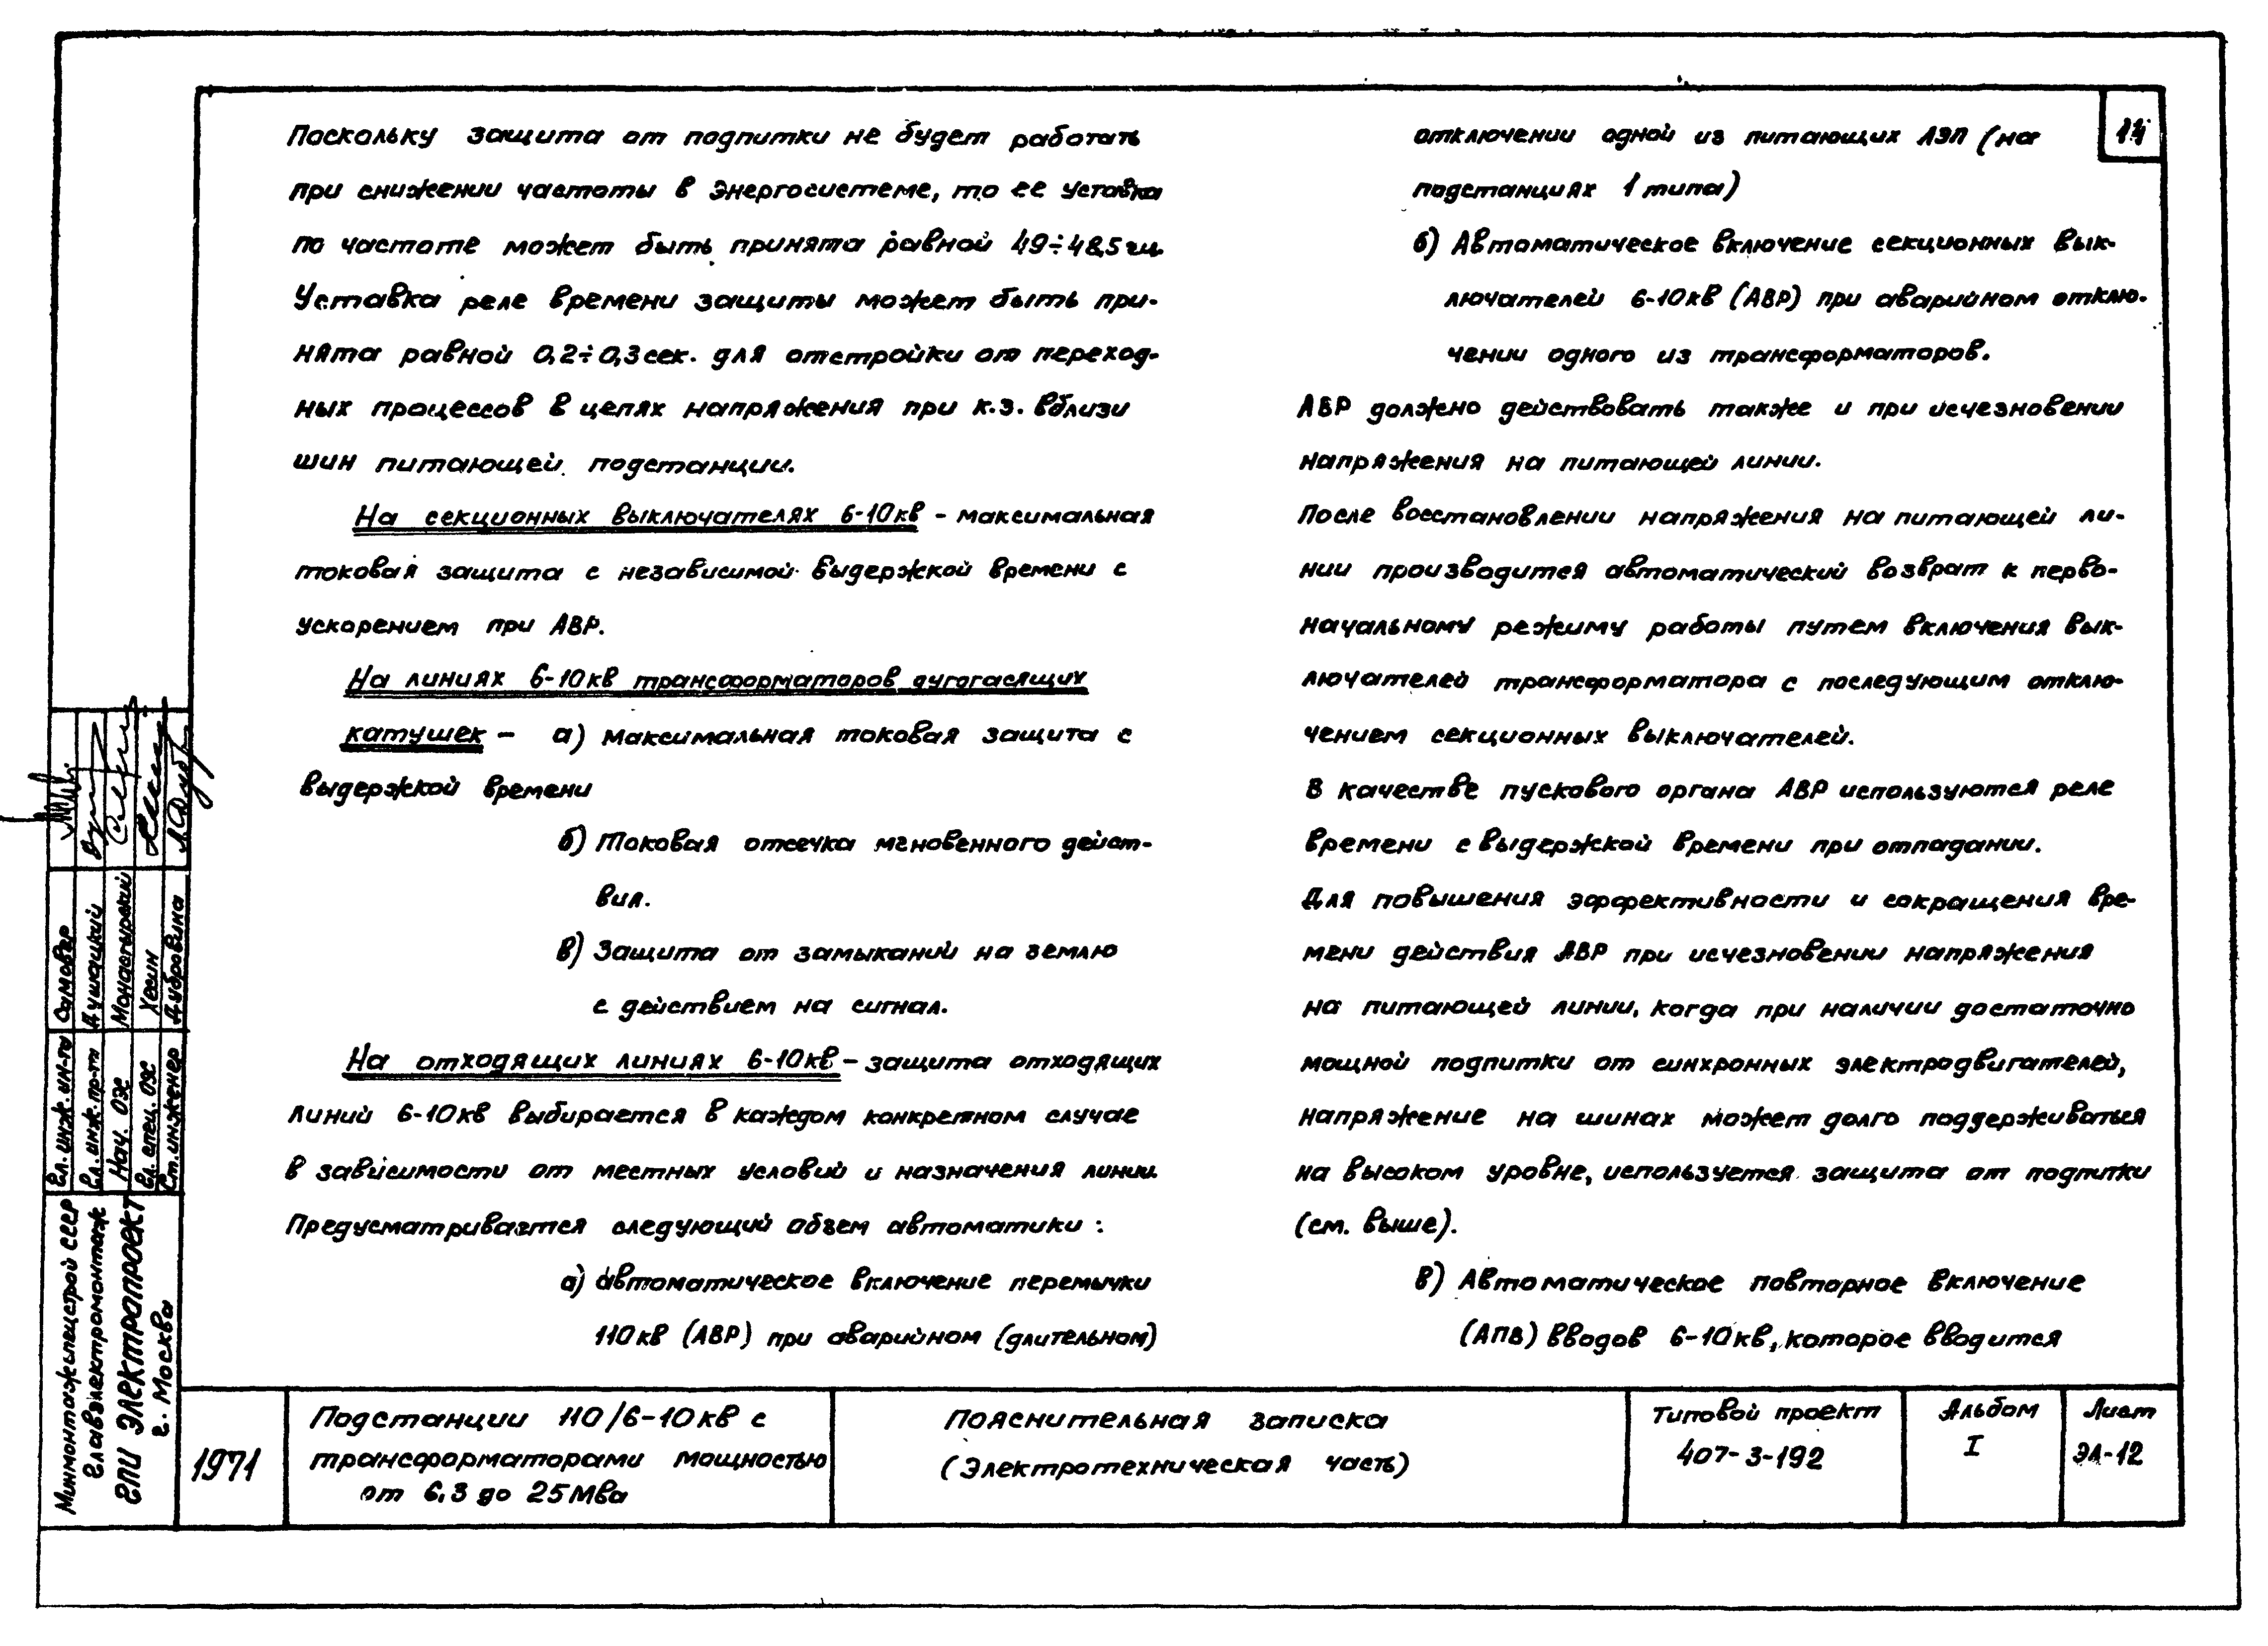 Поскольку защита от подпитки не будет работать
при снижении частоты в энергосистеме, то ее уставка
по частоте может быть принята равной 49÷48,5 гц.
Уставка реле времени защиты может быть при-
нята равной 0,2÷0,3 сек. для отстройки от переход-
ных процессов в цепях напряжения при к.з. вблизи
шин питающей подстанции.
На секционных выключателях 6-10кв - максимальная
токовая защита с независимой выдержкой времени с
ускорением при АВР.
На линиях 6-10кв трансформаторов дугогасящих
катушек - а) максимальная токовая защита с
выдержкой времени
б) Токовая отсечка мгновенного дейст-
вия.
в) Защита от замыканий на землю
с действием на сигнал.
На отходящих линиях 6-10кв - защита отходящих
линий 6-10кв выбирается в каждом конкретном случае
в зависимости от местных условий и назначения линии.
Предусматривается следующий объем автоматики:
а) автоматическое включение перемычки
110кв (АВР) при аварийном (длительном)
14
отключении одной из питающих ЛЭП (на
подстанциях 1 типа)
б) Автоматическое включение секционных вык-
лючателей 6-10кв (АВР) при аварийном отклю-
чении одного из трансформаторов.
АВР должно действовать также и при исчезновении
напряжения на питающей линии.
После восстановлении напряжения на питающей ли-
нии производится автоматический возврат к перво-
начальному режиму работы путем включения вык-
лючателей трансформатора с последующим отклю-
чением секционных выключателей.
В качестве пускового органа АВР используются реле
времени с выдержкой времени при отпадании.
Для повышения эффективности и сокращения вре-
мени действия АВР при исчезновении напряжения
на питающей линии, когда при наличии достаточно
мощной подпитки от синхронных электродвигателей,
напряжение на шинах может долго поддерживаться
на высоком уровне, используется защита от подпитки
(см. выше).
в) Автоматическое повторное включение
(АПВ) вводов 6-10кв, которое вводится
Гл. инж. ин-та Самовер
Гл. инж. пр-та Душацкий
Нач. ОЭС Монастырский
Гл. спец. ОЭС Хесин
Ст. инженер Дубровина
Минмонтажспецстрой СССР
Главэлектромонтаж
ГПИ Электропроект
г. Москва
1971
Подстанции 110/6-10кв с
трансформаторами мощностью
от 6,3 до 25Мва
Пояснительная записка
(Электротехническая часть)
Типовой проект
407-3-192
Альбом
I
Лист
ЭЛ-12